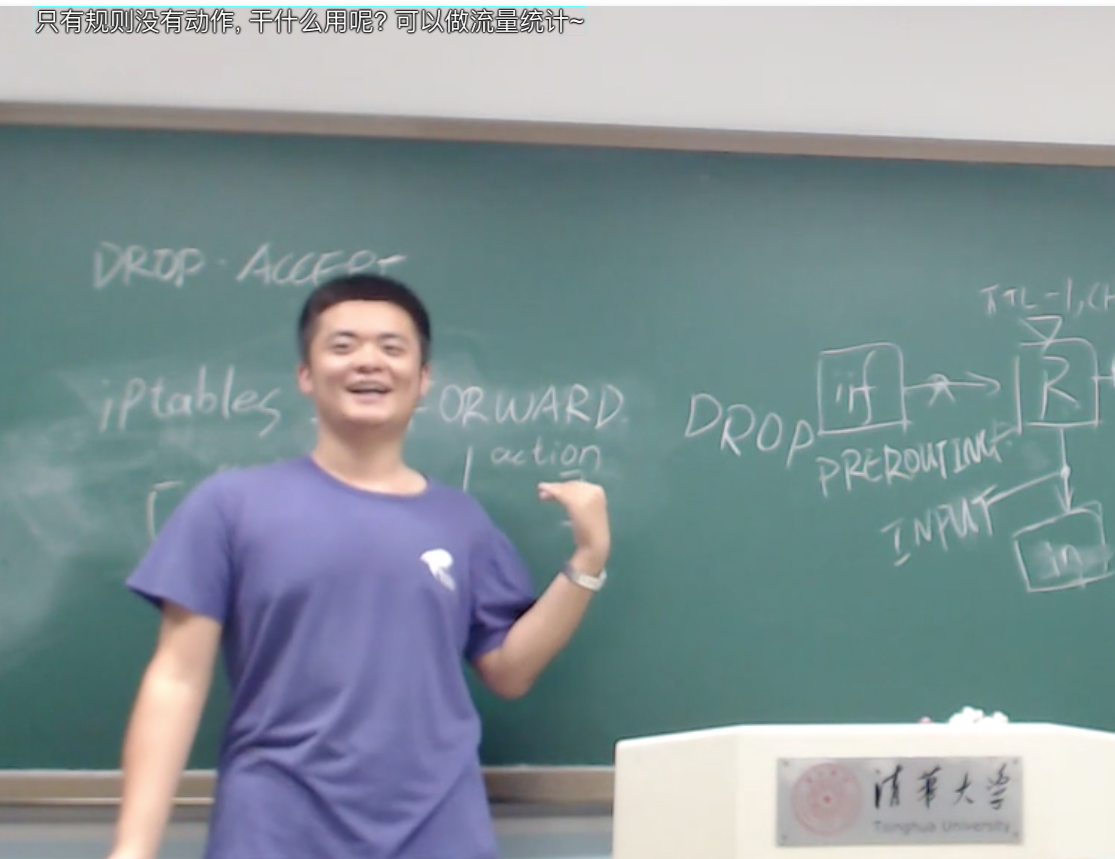 只有规则没有动作, 干什么用呢? 可以做流量统计~
DROP · ACCEPT
iptables FORWARD
action
TTL-1, CH
if
R
DROP
PREROUTING
INPUT
in
清华大学
Tsinghua University